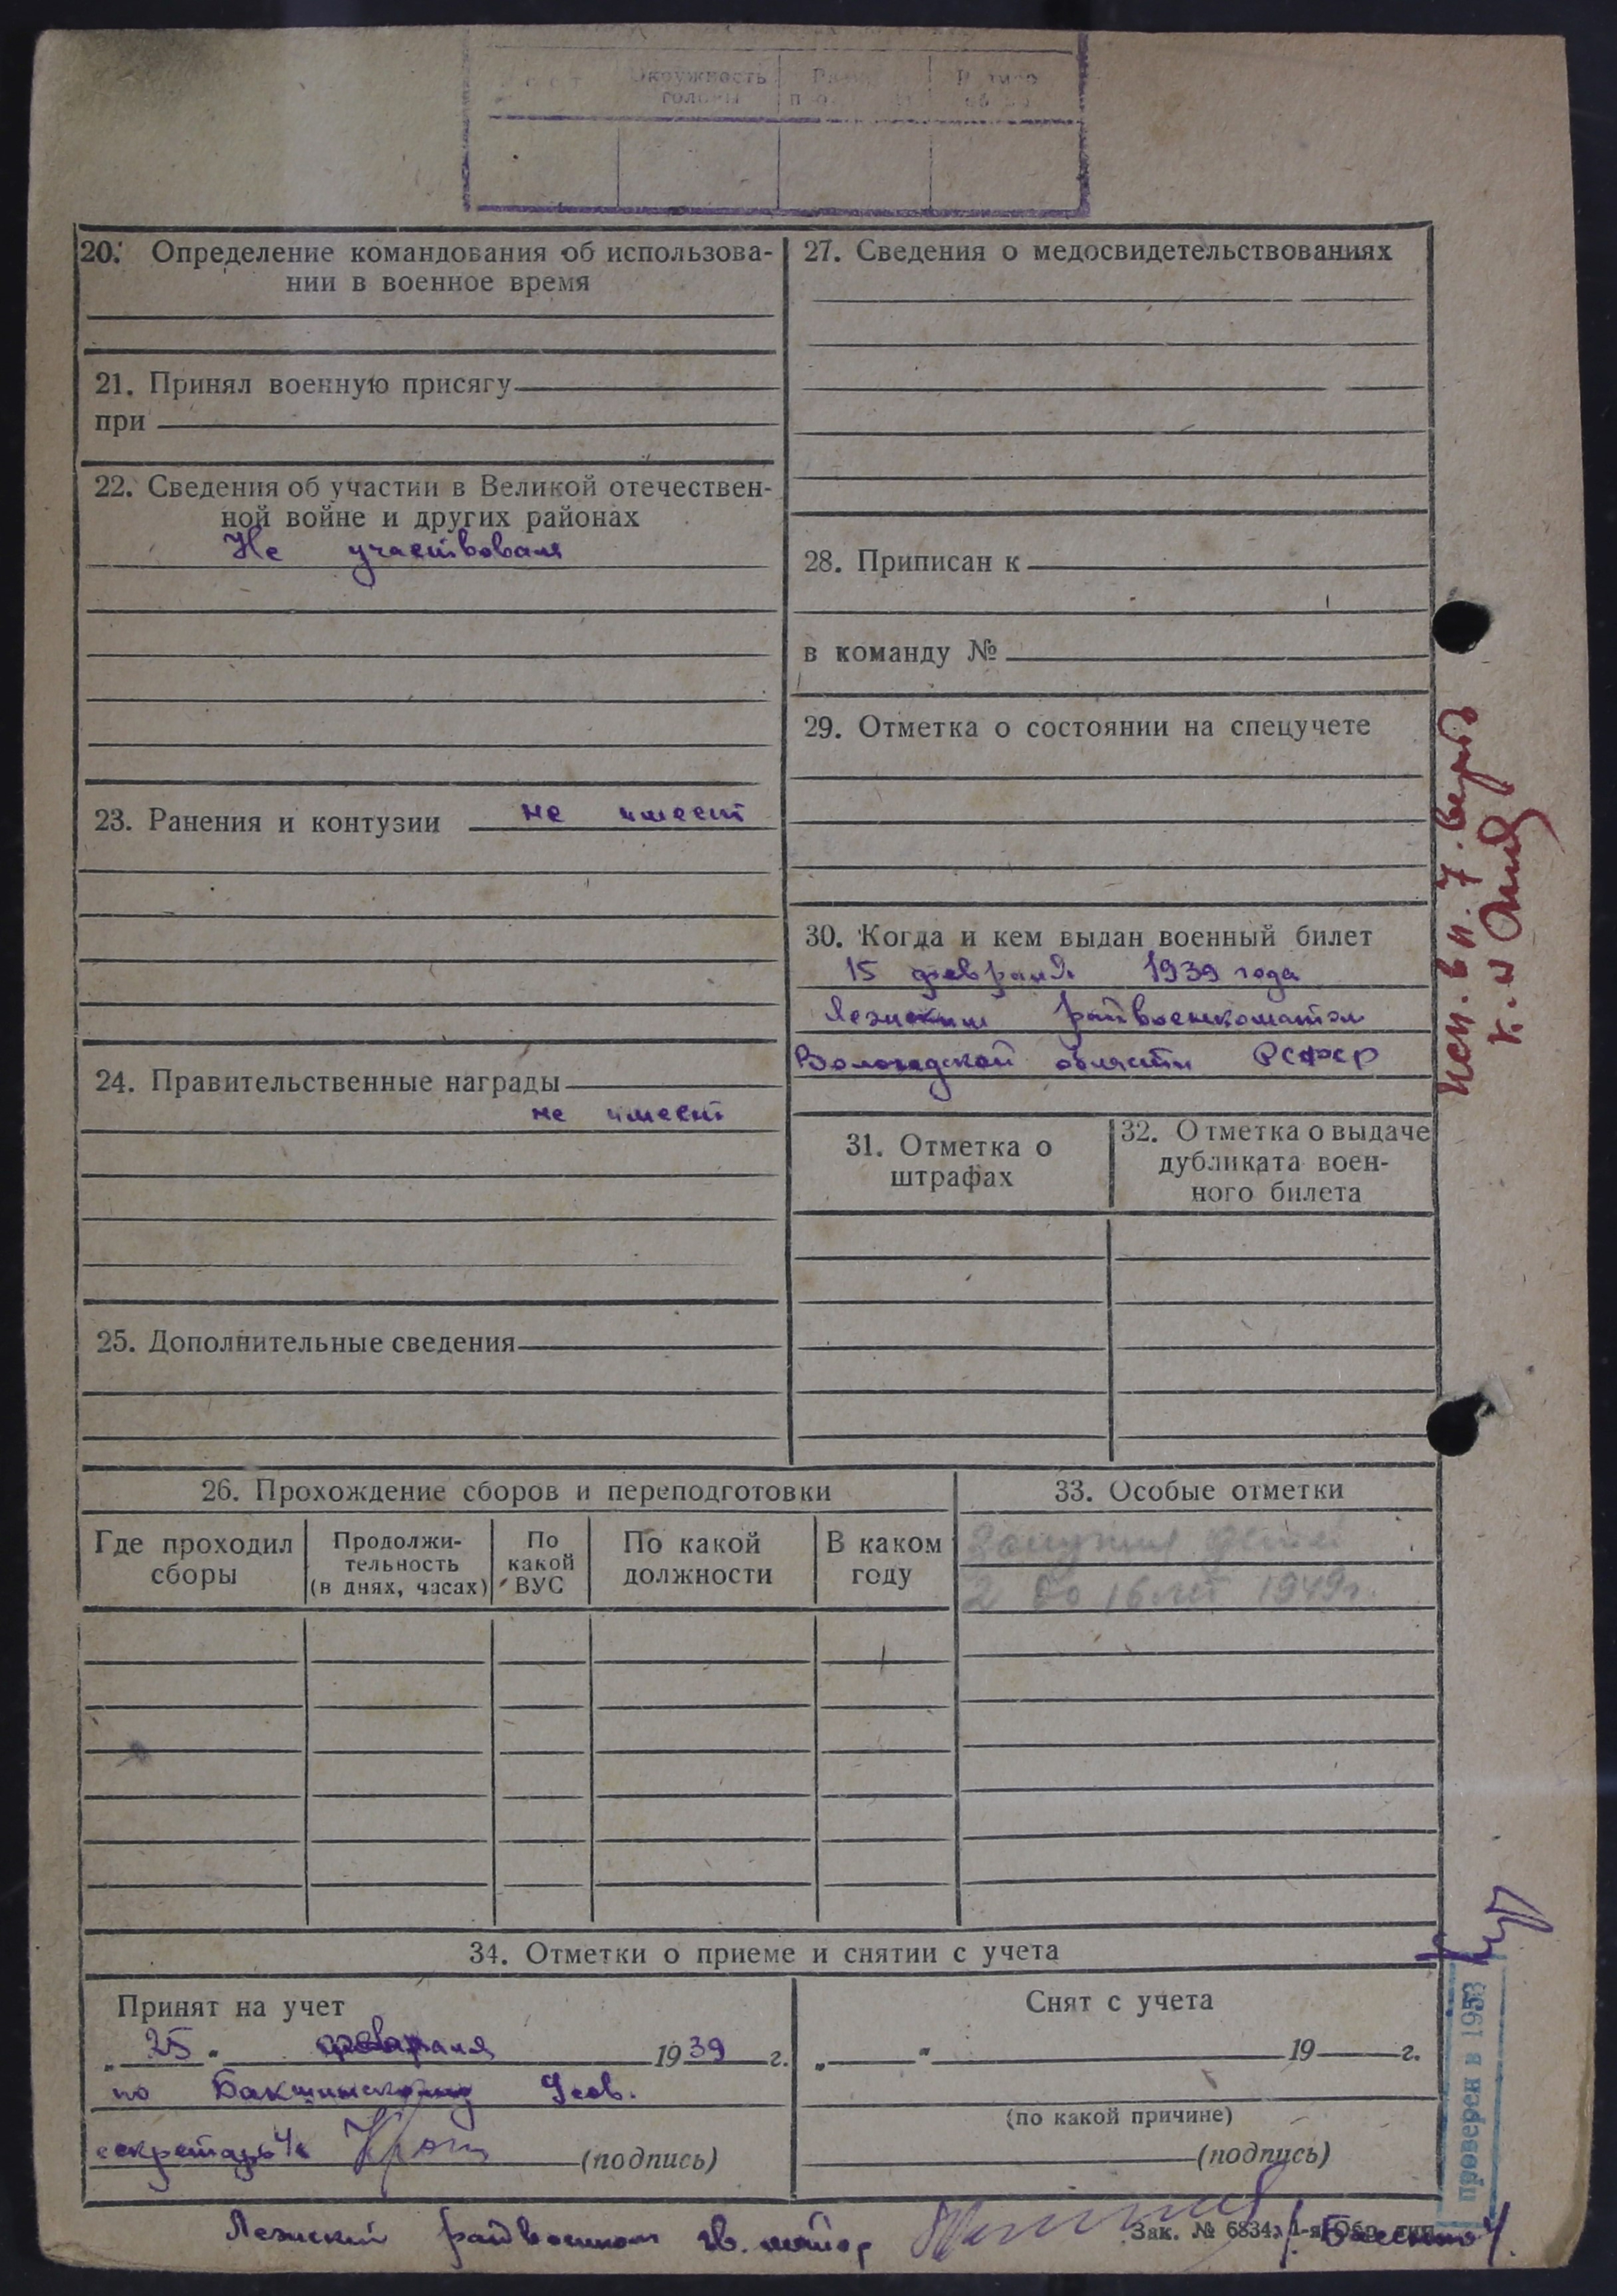 Окружность
головы
20. Определение командования об использова-
нии в военное время
21. Принял военную присягу
при
22. Сведения об участии в Великой отечествен-
ной войне и других районах
Не участвовал
23. Ранения и контузии не имеет
24. Правительственные награды
не имеет
25. Дополнительные сведения
27. Сведения о медосвидетельствованиях
28. Приписан к
в команду №
29. Отметка о состоянии на спецучете
30. Когда и кем выдан военный билет
15 февраля 1939 года
Лежским райвоенкоматом
Вологодской области РСФСР
31. Отметка о
штрафах
32. Отметка о выдаче
дубликата воен-
ного билета
26. Прохождение сборов и переподготовки
Где проходил
сборы
Продолжи-
тельность
(в днях, часах)
По
какой
ВУС
По какой
должности
В каком
году
33. Особые отметки
Замужняя детей
2 до 16 лет 1949г.
34. Отметки о приеме и снятии с учета
Принят на учет
„ 25 “ февраля 1939 г.
по Бакшинскому
секретарь
(подпись)
Снят с учета
„ “ 19 г.
(по какой причине)
(подпись)
Лежский райвоенком гв. майор
Зак. № 6834
проверен в 1953